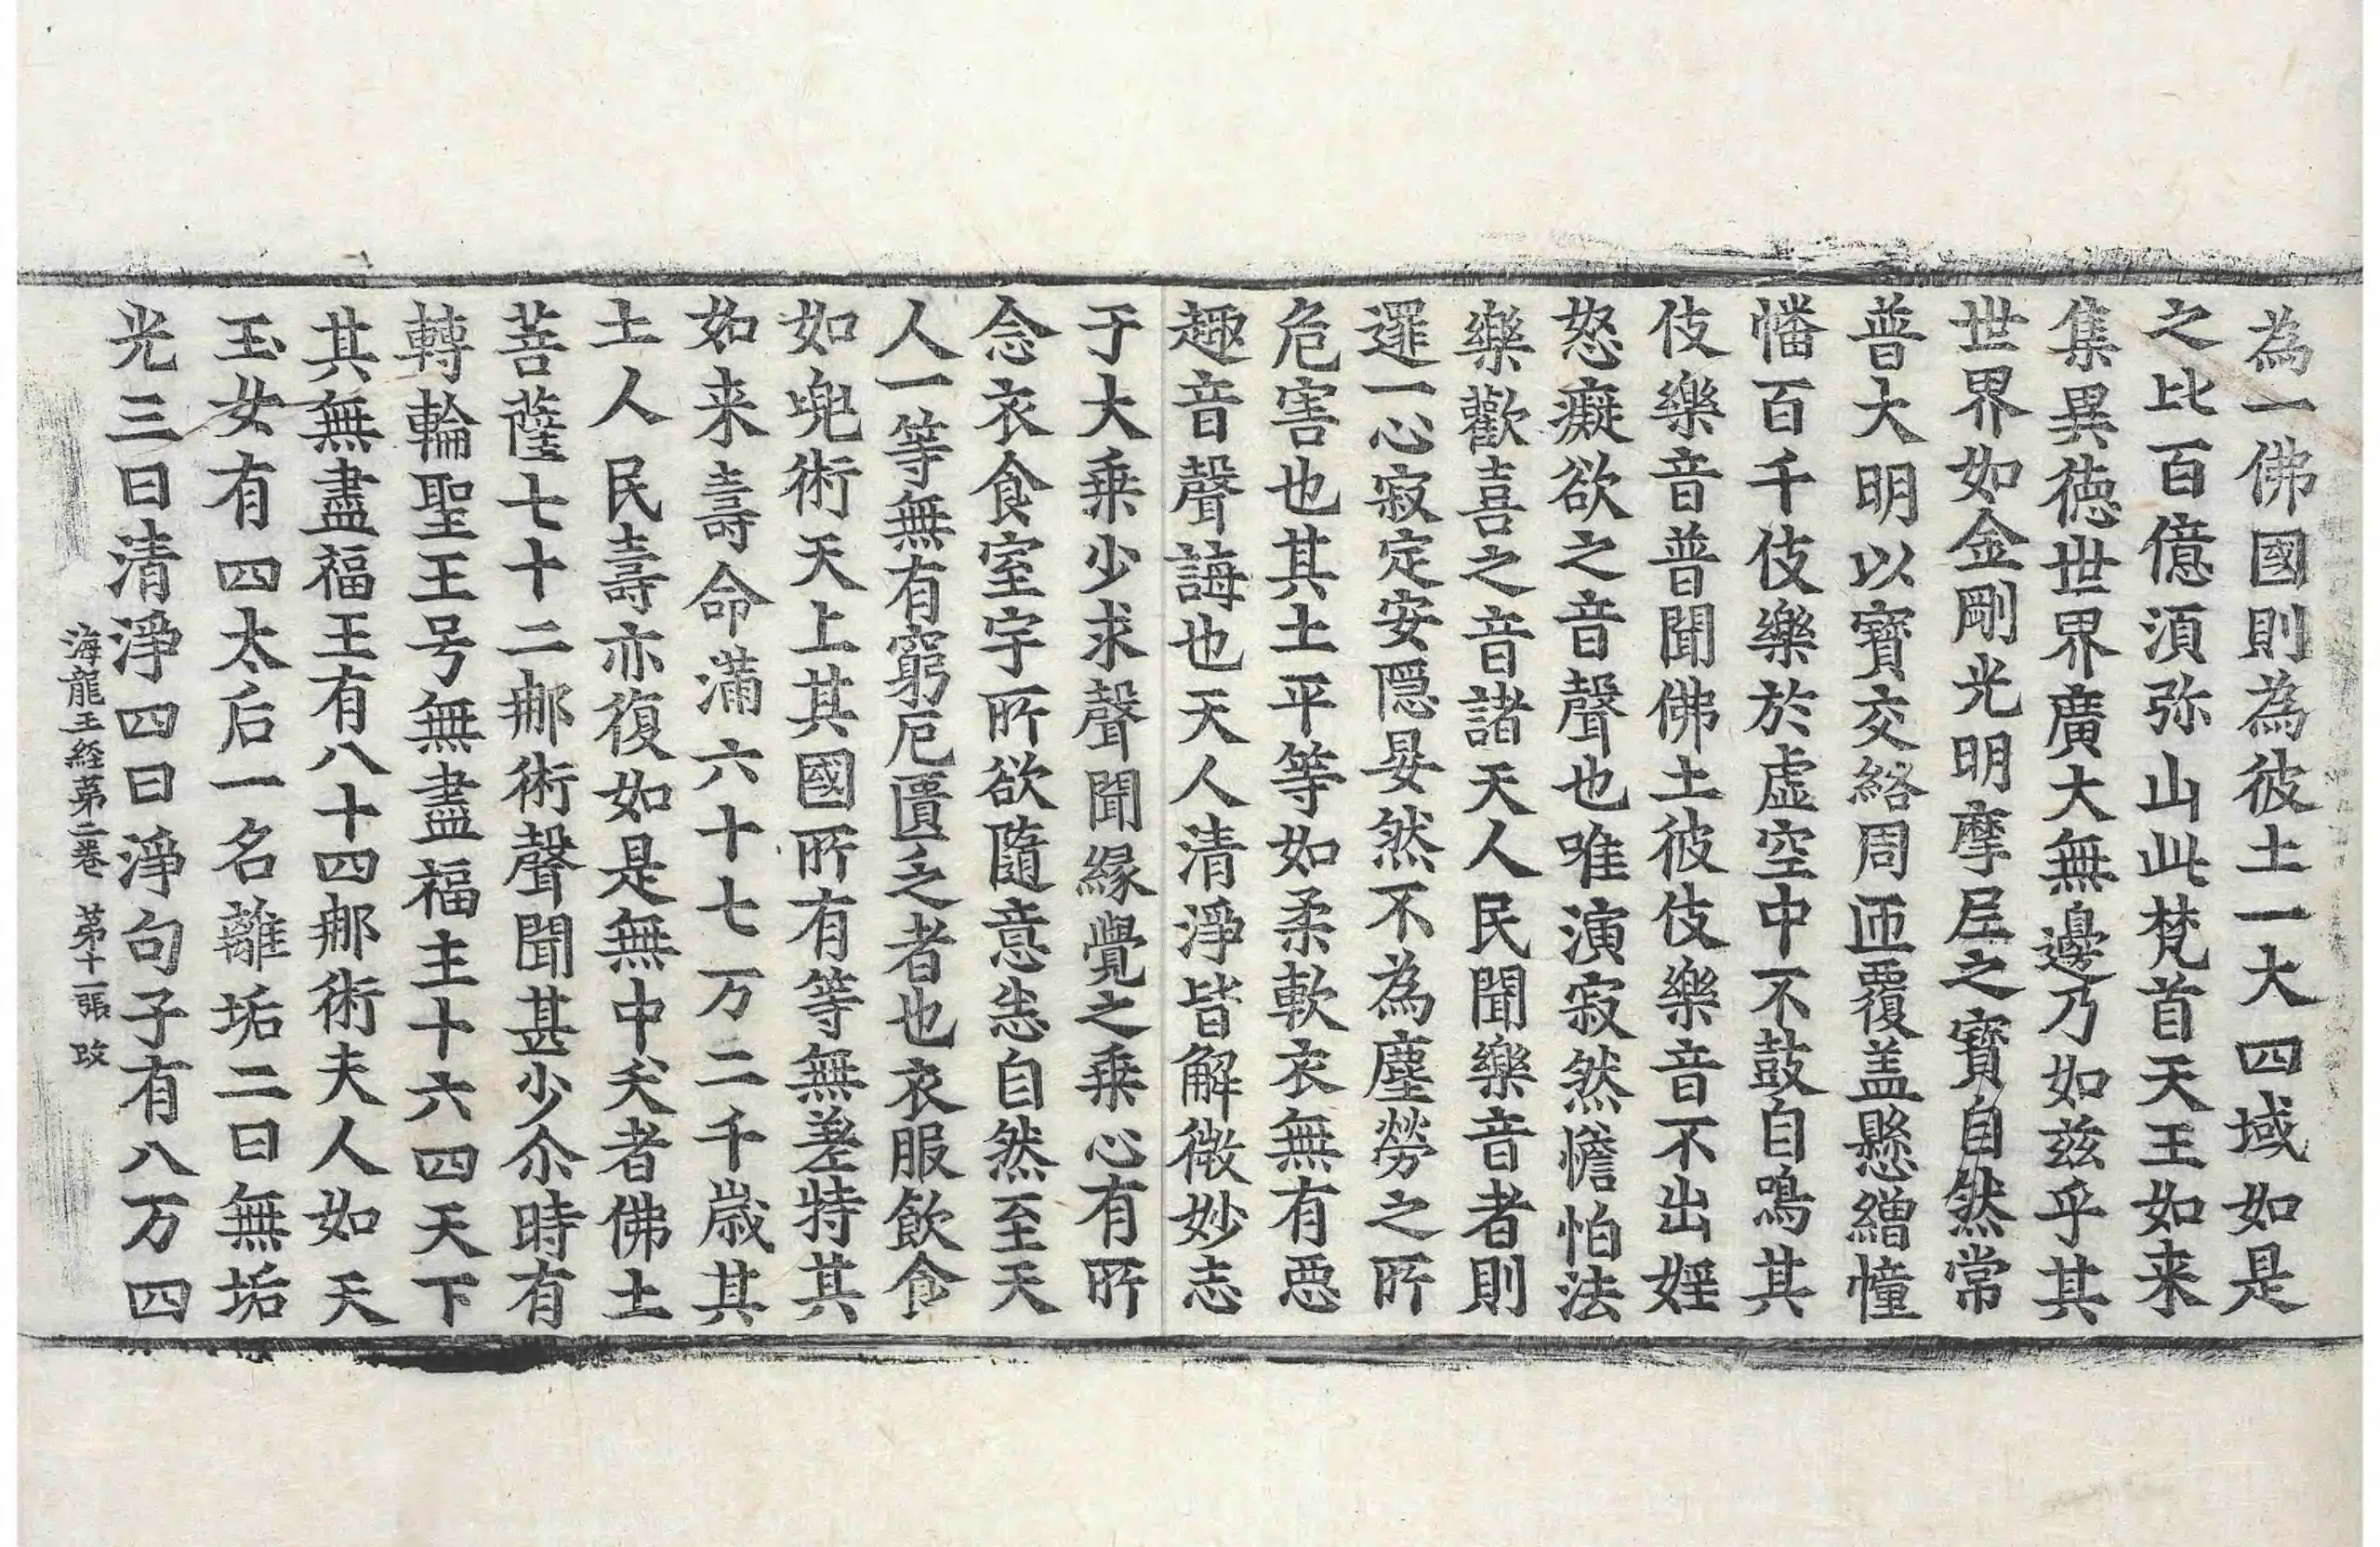 為一佛國則為彼土一大四域如是
之比百億須弥山此梵首天王如来
集異德世界廣大無邊乃如兹乎其
世界如金剛光明摩尼之寳自然常
普大明以寳交絡周匝覆盖懸繒幢
幡百千伎樂於虚空中不鼓自鳴其
伎樂音普聞佛土彼伎樂音不出婬
怒癡欲之音聲也唯演寂然憺怕法
樂歡喜之音諸天人民聞樂音者則
邏一心寂定安隱晏然不為塵勞之所
危害也其土平等如柔軟衣無有惡
趣音聲誨也天人清淨皆解微妙志
于大乗少求聲聞緣覺之乗心有所
念衣食室宇所欲隨意恣自然至天
人一等無有窮厄匱乏者也衣服飲食
如兜術天上其國所有等無差特其
如来壽命滿六十七万二千歲其
土人民壽亦復如是無中夭者佛土
菩薩七十二那術聲聞甚少尒時有
轉輪聖王号無盡福主十六四天下
其無盡福王有八十四那術夫人如天
玉女有四太后一名離垢二曰無垢
光三曰清淨四曰淨句子有八万四
海龍王経苐二卷　苐十一張　玫